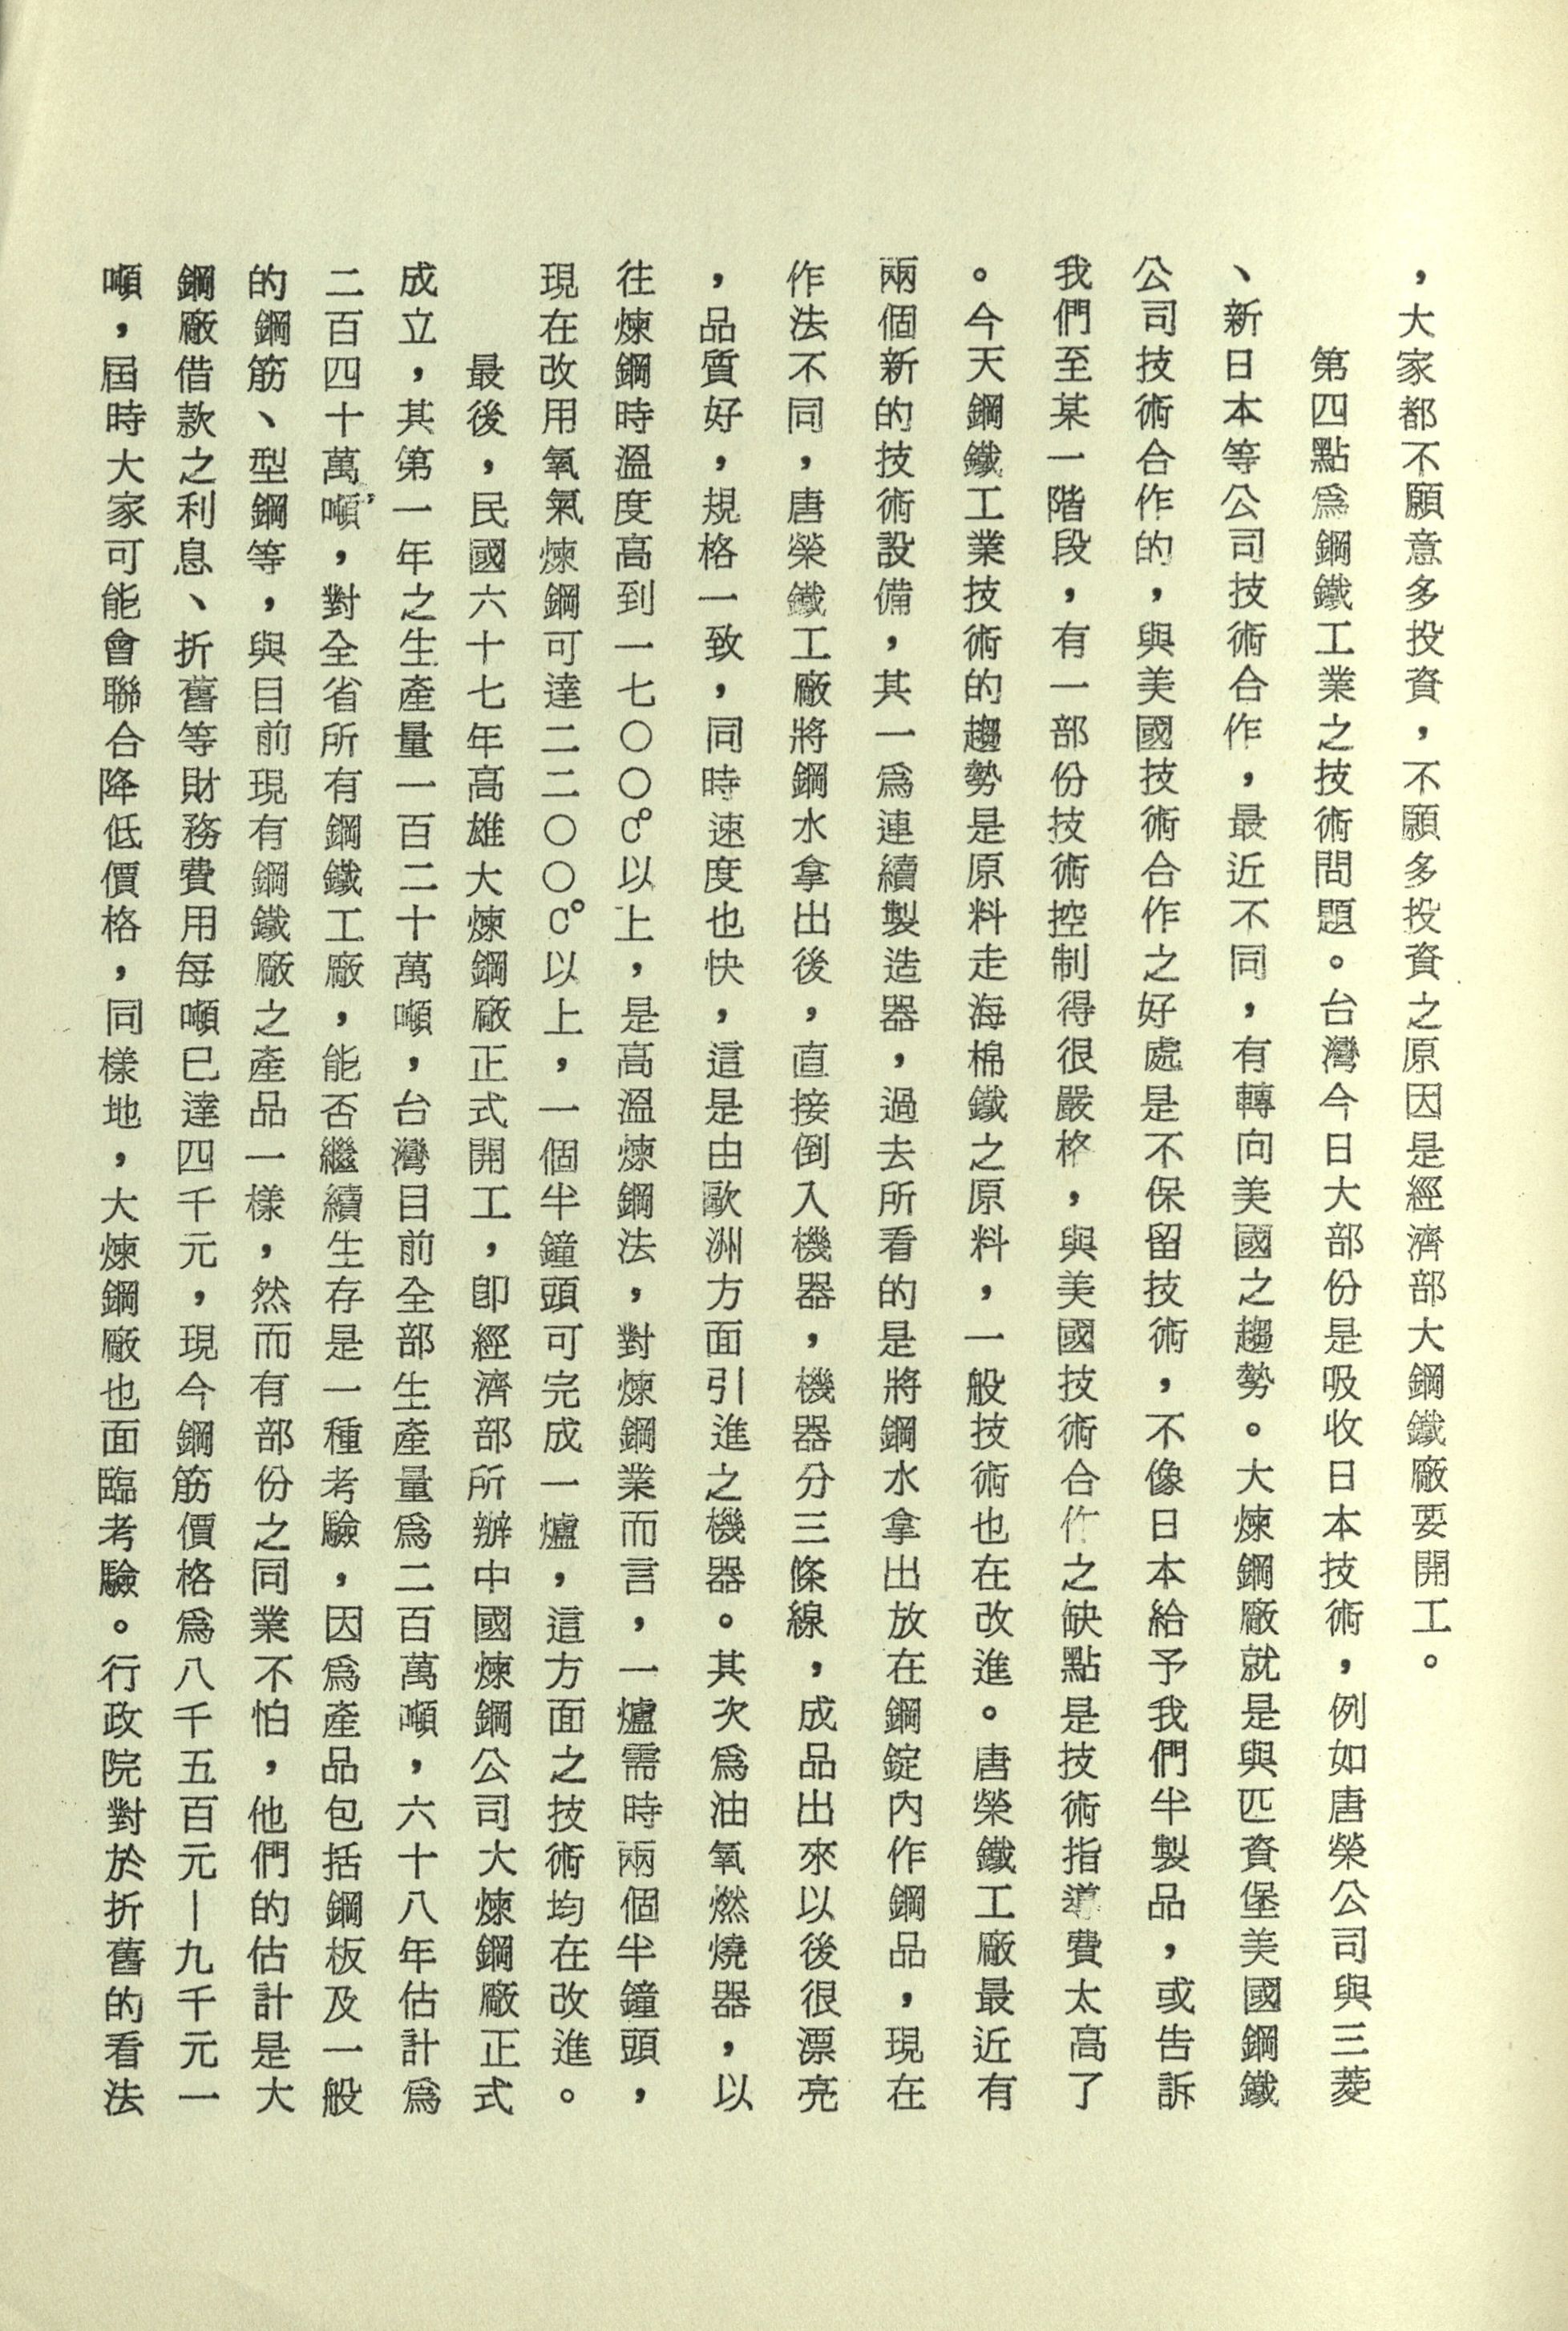 ，大家都不願意多投資，不願多投資之原因是經濟部大鋼鐵廠要開工。
第四點為鋼鐵工業之技術問題。台灣今日大部份是吸收日本技術，例如唐榮公司與三菱
、新日本等公司技術合作，最近不同，有轉向美國之趨勢。大煉鋼廠就是與匹資堡美國鋼鐵
公司技術合作的，與美國技術合作之好處是不保留技術，不像日本給予我們半製品，或告訴
我們至某一階段，有一部份技術控制得很嚴格，與美國技術合作之缺點是技術指導費太高了
。今天鋼鐵工業技術的趨勢是原料走海棉鐵之原料，一般技術也在改進。唐榮鐵工廠最近有
兩個新的技術設備，其一為連續製造器，過去所看的是將鋼水拿出放在鋼錠內作鋼品，現在
作法不同，唐榮鐵工廠將鋼水拿出後，直接倒入機器，機器分三條線，成品出來以後很漂亮
，品質好，規格一致，同時速度也快，這是由歐洲方面引進之機器。其次為油氧燃燒器，以
往煉鋼時溫度高到一七〇〇℃以上，是高溫煉鋼法，對煉鋼業而言，一爐需時兩個半鐘頭，
現在改用氧氣煉鋼可達二二〇〇℃以上，一個半鐘頭可完成一爐，這方面之技術均在改進。
最後，民國六十七年高雄大煉鋼廠正式開工，卽經濟部所辦中國煉鋼公司大煉鋼廠正式
成立，其第一年之生產量一百二十萬噸，台灣目前全部生產量為二百萬噸，六十八年估計為
二百四十萬噸，對全省所有鋼鐵工廠，能否繼續生存是一種考驗，因為產品包括鋼板及一般
的鋼筋、型鋼等，與目前現有鋼鐵廠之產品一樣，然而有部份之同業不怕，他們的估計是大
鋼廠借款之利息、折舊等財務費用每噸已達四千元，現今鋼筋價格為八千五百元—九千元一
噸，屆時大家可能會聯合降低價格，同樣地，大煉鋼廠也面臨考驗。行政院對於折舊的看法